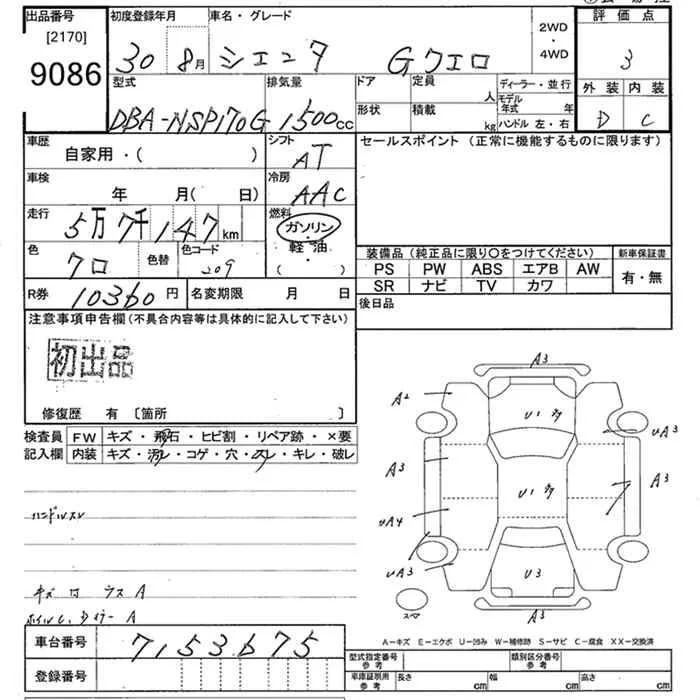 出品番号 初度登録年月 車名・グレード 2WD・4WD 評価点
[2170]
9086 30 8月 シエンタ Gクエロ 3
型式 排気量 ドア 定員 人 ディーラー・並行 外装 内装
形状 積載 kg モデル年式 年 ハンドル 左・右
DBA-NSP170G 1500cc D C
車歴 シフト セールスポイント (正常に機能するものに限ります)
自家用・( ) AT
車検 冷房
年 月(日) AAC
走行 燃料
5万7千147km ガソリン・軽油・( )
色 色替 色コード
クロ 209
装備品(純正品に限り〇をつけてください) 新車保証書
PS PW ABS エアB AW 有・無
SR ナビ TV カワ
R券 10360円 名変期限 月 日 後日品
注意事項申告欄(不具合内容等は具体的に記入して下さい)
初出品
修復歴 有 〔箇所 〕
検査員記入欄 FW キズ・飛石・ヒビ割・リペア跡・×要
内装 キズ・汚レ・コゲ・穴・スレ・キレ・破レ
A3
A2
U1
UA3
A3
A3
U1
UA4
UA3
U3
A3
スペア
ハンドルスレ
キズ
A
A
A-キズ E-エクボ U-凹み W-補修跡 S-サビ C-腐食 XX-交換済
車台番号 7153675
型式指定番号 参考 類別区分番号 参考
登録番号 車庫証明用 参考 長さ cm 幅 cm 高さ cm